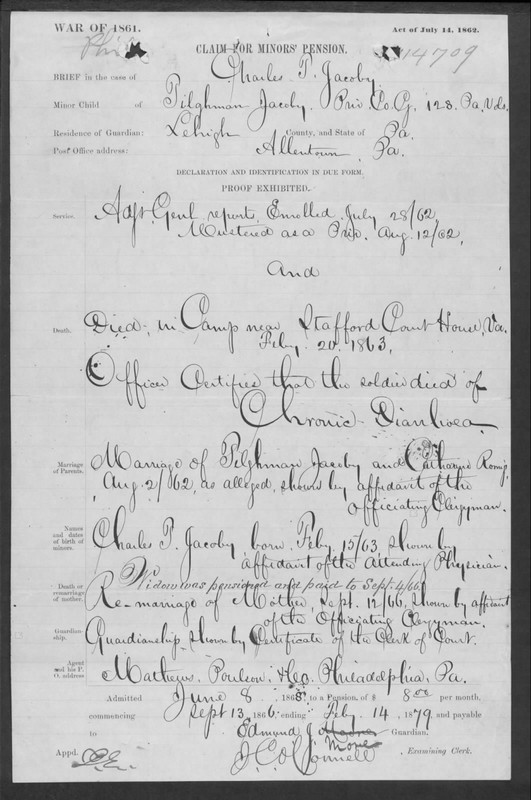 WAR OF 1861.
Act of July 14, 1862.
Phila
CLAIM FOR MINORS' PENSION.
14709
BRIEF in the case of Charles T. Jacoby,
Minor Child of Tilghman Jacoby. Priv. Co. G, 128. Pa. Vols.
Residence of Guardian: Lehigh County, and State of Pa.
Post Office address: Allentown, Pa.
DECLARATION AND IDENTIFICATION IN DUE FORM.
PROOF EXHIBITED.
Service. Adjt. Genl. report, Enrolled July 28/62
Mustered as a Priv. Aug. 12/62,
And
Death. Died, in Camp near Stafford Court House, Va.
Feby. 20. 1863.
Officer Certifies that the soldier died of
Chronic Diarrhoea.
Marriage of Parents. Marriage of Tilghman Jacoby and Catharine Romig,
Aug. 2/1862, as alleged, shown by affidavit of the
Officiating Clergyman.
Names and dates of birth of minors. Charles T. Jacoby born Feby. 15/63 shown by
affidavit of the Attending Physician.
Widow was pensioned and paid to Sept. 4/66
Death or remarriage of mother. Re-marriage of Mother, Sept. 12/66, shown by affidavit
of the Officiating Clergyman.
Guardianship. Guardianship, shown by Certificate of the Clerk of Court.
Agent and his P. O. address Mathews, Poulson, &Co. Philadelphia, Pa.
Admitted June 8 1868 to a Pension of $ 8 00 per month,
commencing Sept 13, 1866, ending Feby 14, 1879, and payable
to Edmund J. Guardian,
Appd. J. C. O'Connell, Examining Clerk.